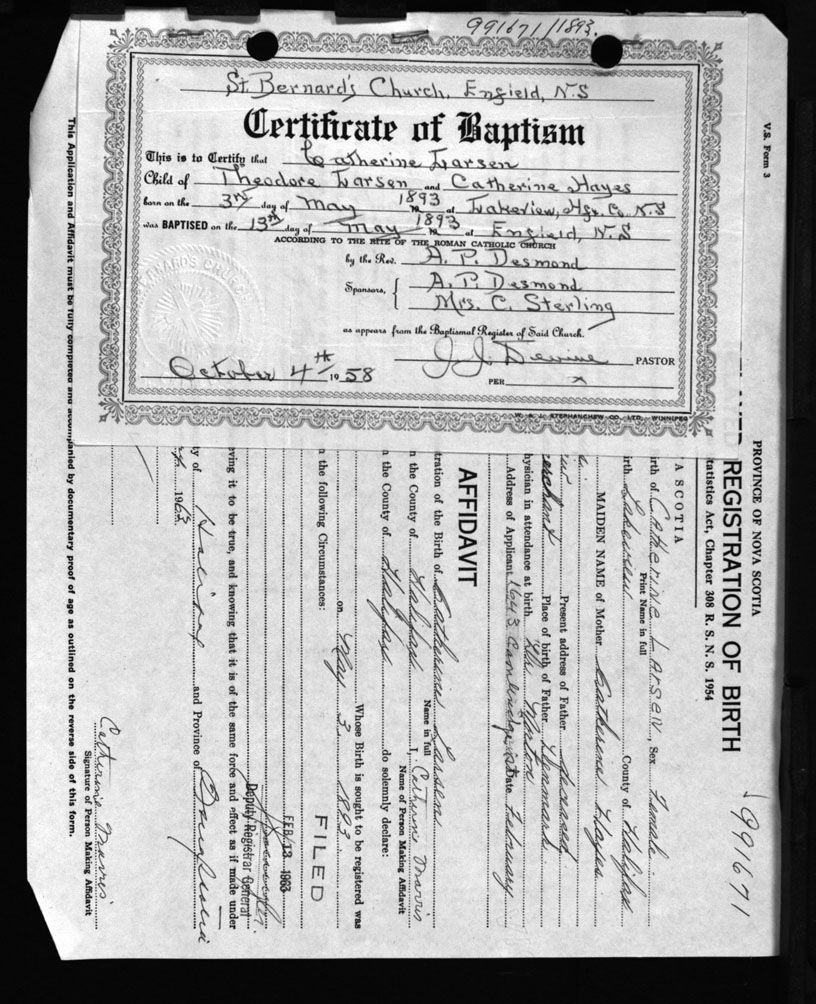 991671/1893.
St. Bernard's Church, Enfield, N.S
Certificate of Baptism
This is to Certify that Catherine Larsen
Child of Theodore Larsen and Catherine Hayes
born on the 3rd day of May 1893 19 at Lakeview, Hfx. Co. N.S
was BAPTISED on the 13th day of May 1893 19 at Enfield, N.S
ACCORDING TO THE RITE OF THE ROMAN CATHOLIC CHURCH
by the Rev. A. P. Desmond
Sponsors, { A. P. Desmond
Mrs. C. Sterling
as appears from the Baptismal Register of Said Church.
J. J. Devine PASTOR
October 4th 1958
PER x
CO. LTD. WINNIPEG
V.S. Form 3
PROVINCE OF NOVA SCOTIA
991671
REGISTRATION OF BIRTH
tatistics Act, Chapter 308 R. S. N. S. 1954
A SCOTIA
rth of Catherine Larsen, Sex Female
Print Name in full
irth Lakeview County of Halifax
MAIDEN NAME of Mother Catherine Hayes
Present address of Father deceased
erchant Place of birth of Father Denmark
hysician in attendance at birth Dr
Address of Applicant 1643 Cambridge St Date February
AFFIDAVIT
tration of the Birth of Catherine Larsen
Name in full
n the County of Halifax I, Catherine Morris
Name of Person Making Affidavit
n the County of Halifax do solemnly declare:
Whose Birth is sought to be registered was
on May 3 1893
n the following Circumstances:
FILED
FEB 13 1963
Deputy Registrar General
eving it to be true, and knowing that it is of the same force and effect as if made under
ty of Halifax and Province of
1963
Catherine Morris
Signature of Person Making Affidavit
This Application and Affidavit must be fully completed and accompanied by documentary proof of age as outlined on the reverse side of this form.